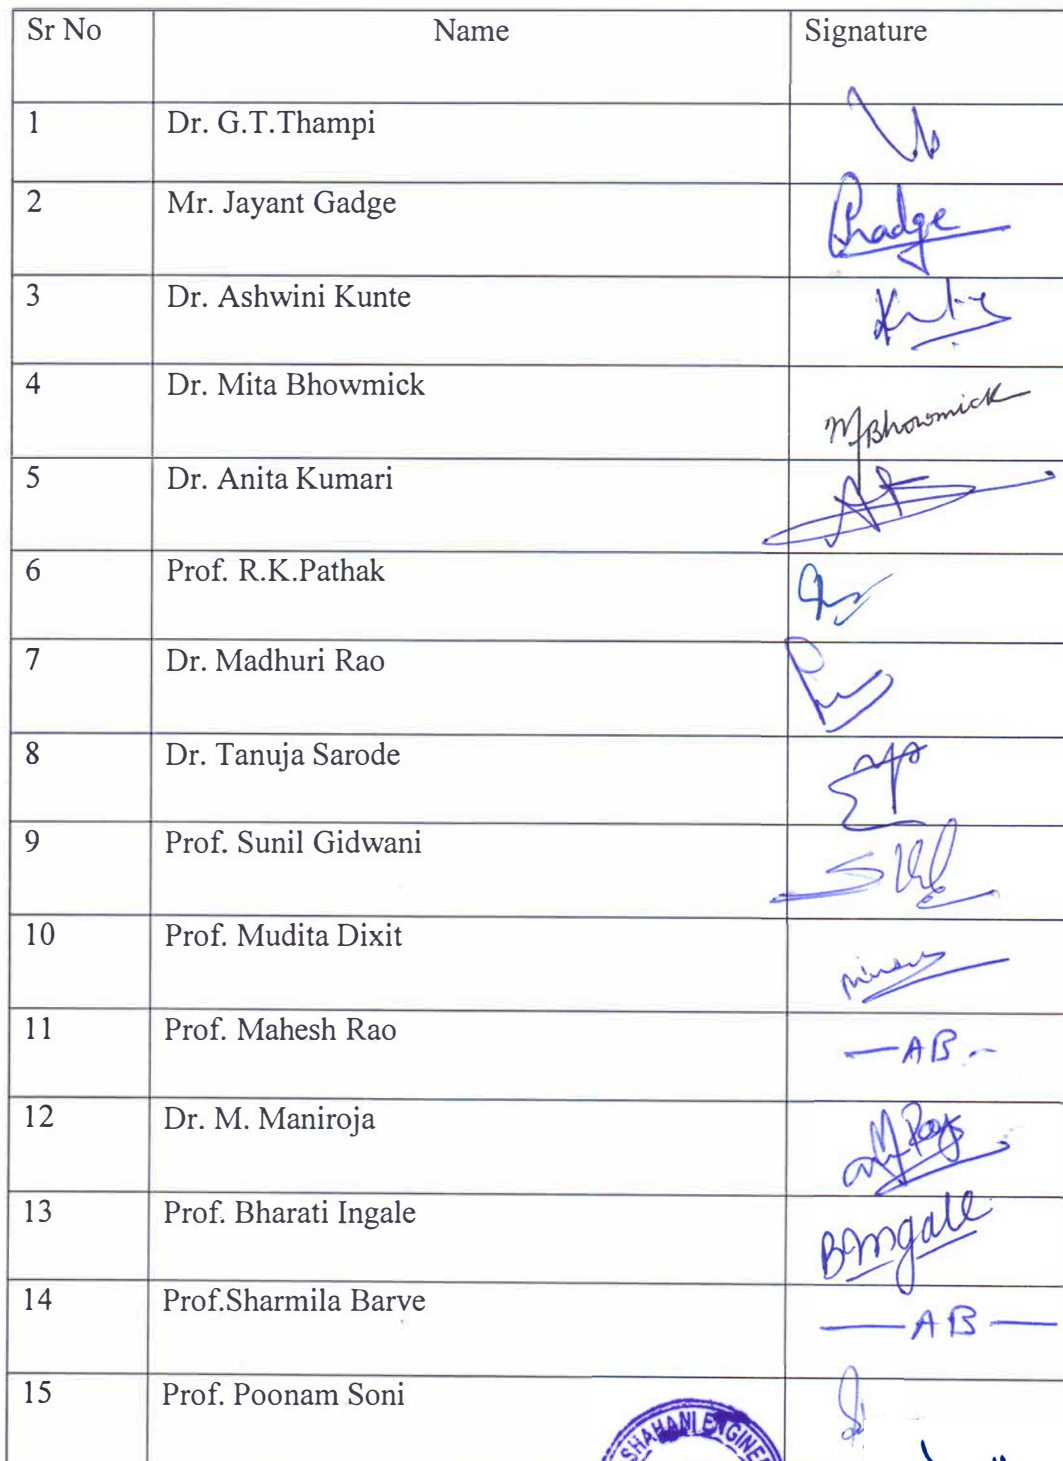 Sr No Name Signature
1 Dr. G.T.Thampi
2 Mr. Jayant Gadge Gadge
3 Dr. Ashwini Kunte
4 Dr. Mita Bhowmick MBhowmick
5 Dr. Anita Kumari AK
6 Prof. R.K.Pathak
7 Dr. Madhuri Rao
8 Dr. Tanuja Sarode
9 Prof. Sunil Gidwani
10 Prof. Mudita Dixit
11 Prof. Mahesh Rao —AB—
12 Dr. M. Maniroja
13 Prof. Bharati Ingale BIngale
14 Prof.Sharmila Barve —AB—
15 Prof. Poonam Soni
SHAHANI ENGINE